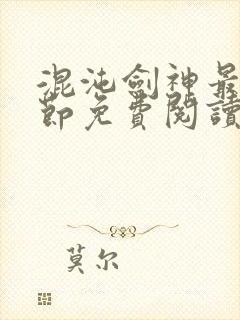 混沌劍神最
節免費閱讀
莫尔